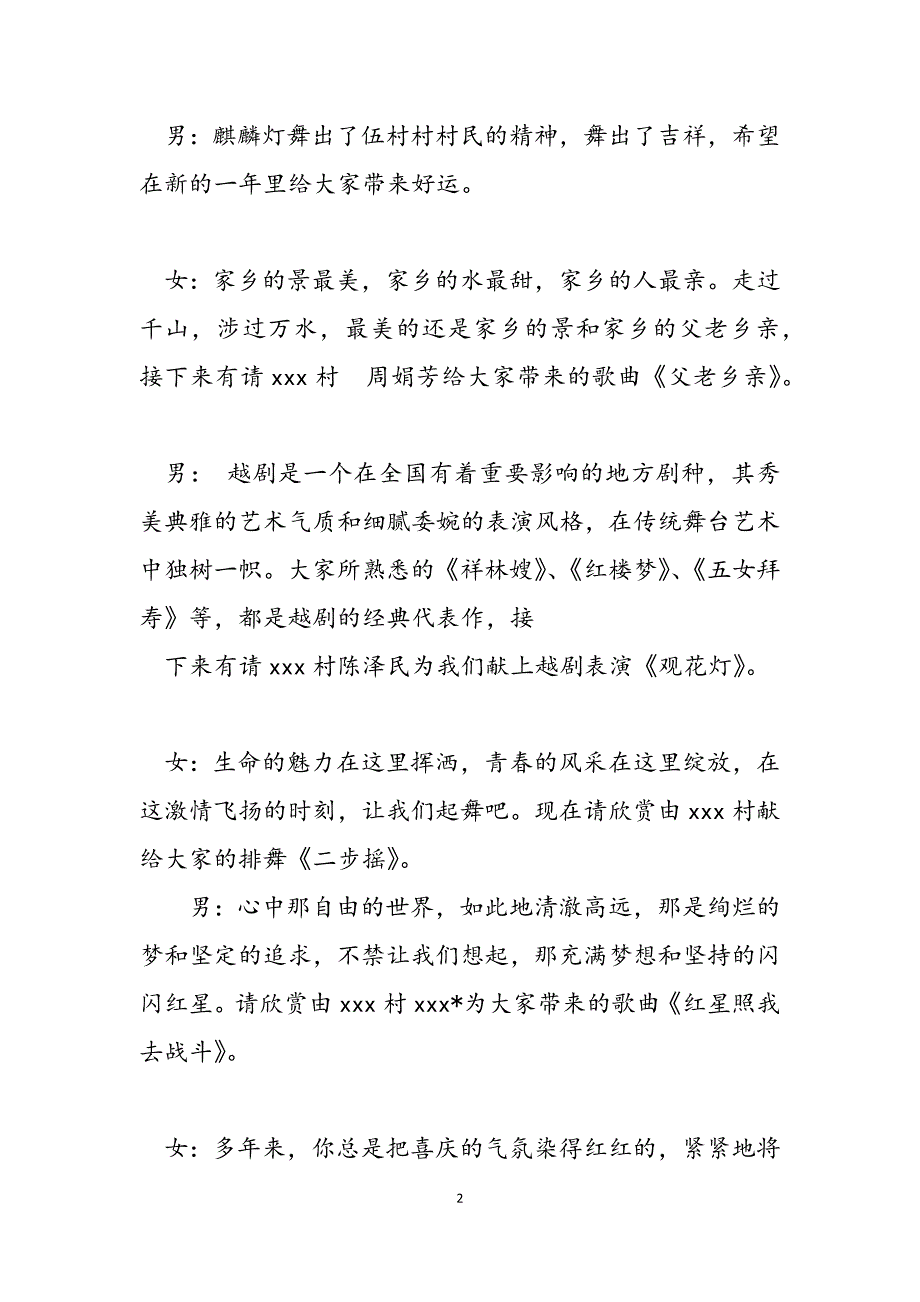 男：麒麟灯舞出了伍村村村民的精神，舞出了吉祥，希望
在新的一年里给大家带来好运。
女：家乡的景最美，家乡的水最甜，家乡的人最亲。走过
千山，涉过万水，最美的还是家乡的景和家乡的父老乡亲，
接下来有请 xxx 村　周娟芳给大家带来的歌曲《父老乡亲》。
男：　越剧是一个在全国有着重要影响的地方剧种，其秀
美典雅的艺术气质和细腻委婉的表演风格，在传统舞台艺术
中独树一帜。大家所熟悉的《祥林嫂》、《红楼梦》、《五女拜
寿》等，都是越剧的经典代表作，接
下来有请 xxx 村陈泽民为我们献上越剧表演《观花灯》。
女：生命的魅力在这里挥洒，青春的风采在这里绽放，在
这激情飞扬的时刻，让我们起舞吧。现在请欣赏由 xxx 村献
给大家的排舞《二步摇》。
男：心中那自由的世界，如此地清澈高远，那是绚烂的
梦和坚定的追求，不禁让我们想起，那充满梦想和坚持的闪
闪红星。请欣赏由 xxx 村 xxx*为大家带来的歌曲《红星照我
去战斗》。
女：多年来，你总是把喜庆的气氛染得红红的，紧紧地将
2